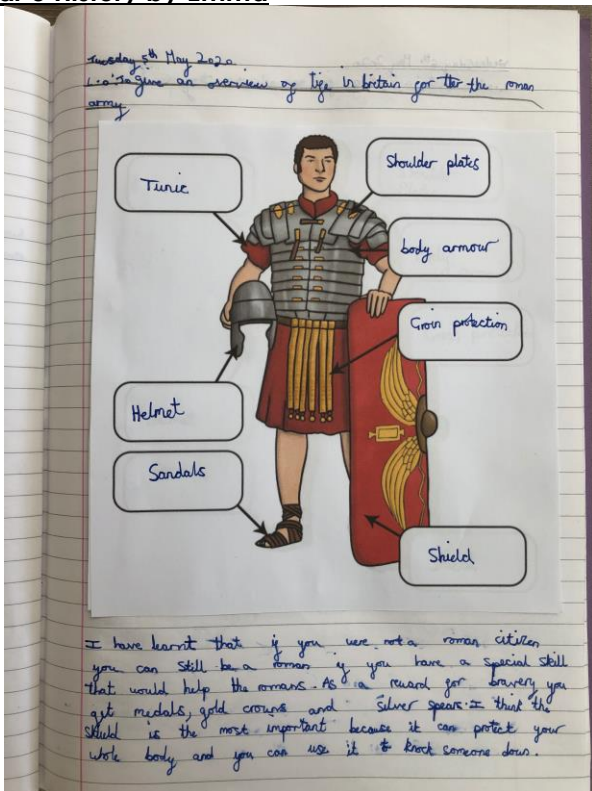 History by Emma
Tuesday 5th May 2020
L.o: To give an overview of life in britain for the roman
army
Shoulder plates
Tunic
body armour
Groin protection
Helmet
Sandals
Shield
I have learnt that if you were not a roman citizen
you can still be a roman if you have a special skill
that would help the romans. As a reward for bravery you
get medals, gold crowns and silver spears. I think the
shield is the most important because it can protect your
whole body and you can use it to knock someone down.